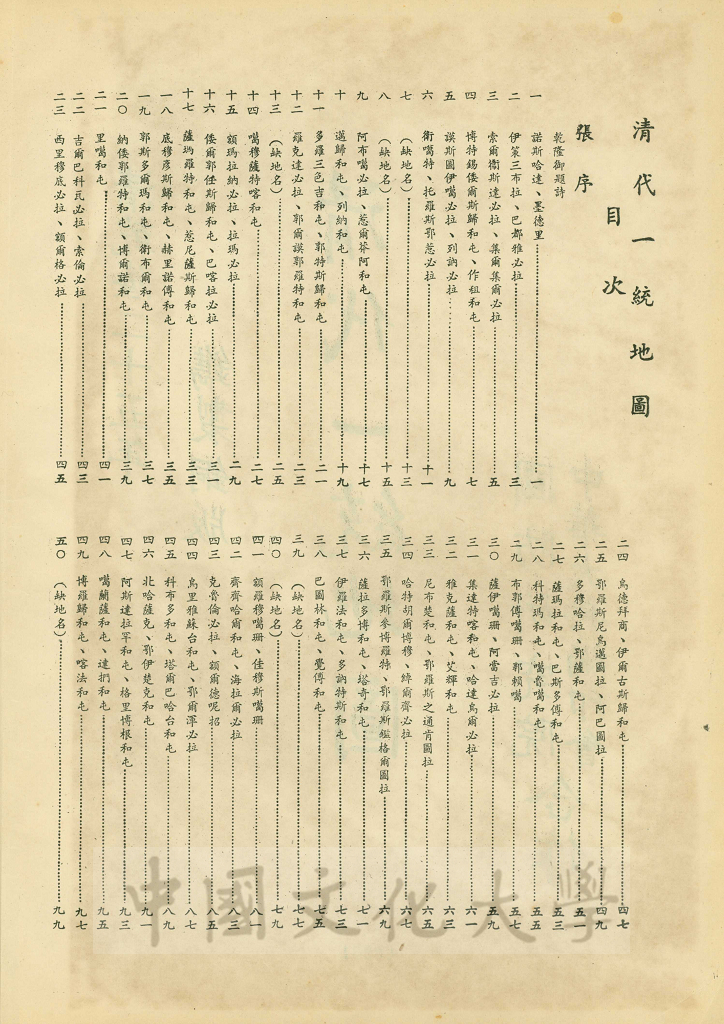 清代一統地圖
目次
張序
乾隆御題詩
一 諾斯哈達、墨德里 一
二 伊策三布拉、巴都雅必拉 三
三 索爾衛斯達必拉、集爾集爾必拉 五
四 博特錫倭爾斯歸和屯、作祖和屯 七
五 謨斯圖伊噶必拉、列訥必拉 九
六 衛噶特、托羅斯鄂惹必拉 十一
七 （缺地名） 十三
八 （缺地名） 十五
九 阿布噶必拉、惹爾芬阿和屯 十七
十 邁歸和屯、列納和屯 十九
十一 多羅三色吉和屯、郭特斯歸和屯 二一
十二 羅克達必拉、郭爾謨郭羅特和屯 二三
十三 （缺地名） 二五
十四 噶穆薩特喀和屯 二七
十五 額瑪拉納必拉、拉瑪必拉 二九
十六 倭爾郭任斯歸和屯、巴喀拉必拉 三一
十七 薩瑪羅特和屯、惹尼薩斯歸和屯 三三
一八 底穆彥斯歸和屯、赫里諾傅和屯 三五
一九 郭斯多爾瑪和屯、衛布爾和屯 三七
二〇 納倭郭羅特和屯、博爾諾和屯 三九
二一 里噶和屯 四一
二二 吉爾巴科瓦必拉、索倫必拉 四三
二三 西里穆底必拉、額爾格必拉 四五
二四 烏德拜商、伊爾古斯歸和屯 四七
二五 鄂羅斯尼烏邁圖拉、阿巴圖拉 四九
二六 多穆哈拉、鄂薩和屯 五一
二七 薩瑪拉和屯、巴斯多傅和屯 五三
二八 科特瑪和屯、噶魯噶和屯 五五
二九 布郭傅噶珊、郭賴噶 五七
三〇 薩伊噶珊、阿當吉必拉 五九
三一 集達特喀和屯、哈達烏爾必拉 六一
三二 雅克薩和屯、艾輝和屯 六三
三三 尼布楚和屯、鄂羅斯之通肯圖拉 六五
三四 哈特胡爾博穆、綽爾齊必拉 六七
三五 鄂羅斯參博羅特、鄂羅斯繼格爾圖拉 六九
三六 薩拉多博和屯、塔奇和屯 七一
三七 伊羅法和屯、多訥特斯和屯 七三
三八 巴圖林和屯、覺傅和屯 七五
三九 （缺地名） 七七
四〇 （缺地名） 七九
四一 額羅穆噶珊、佳穆斯噶珊 八一
四二 齊齊哈爾和屯、海拉爾必拉 八三
四三 克魯倫必拉、額爾德呢招 八五
四四 烏里雅蘇台和屯、鄂爾渾必拉 八七
四五 科布多和屯、塔爾巴哈台和屯 八九
四六 北哈薩克、鄂伊楚克和屯 九一
四七 阿斯達拉罕和屯、格里博根和屯 九三
四八 噶蘭薩和屯、達捫和屯 九五
四九 博羅歸和屯、喀法和屯 九七
五〇 （缺地名） 九九
中國文化大學